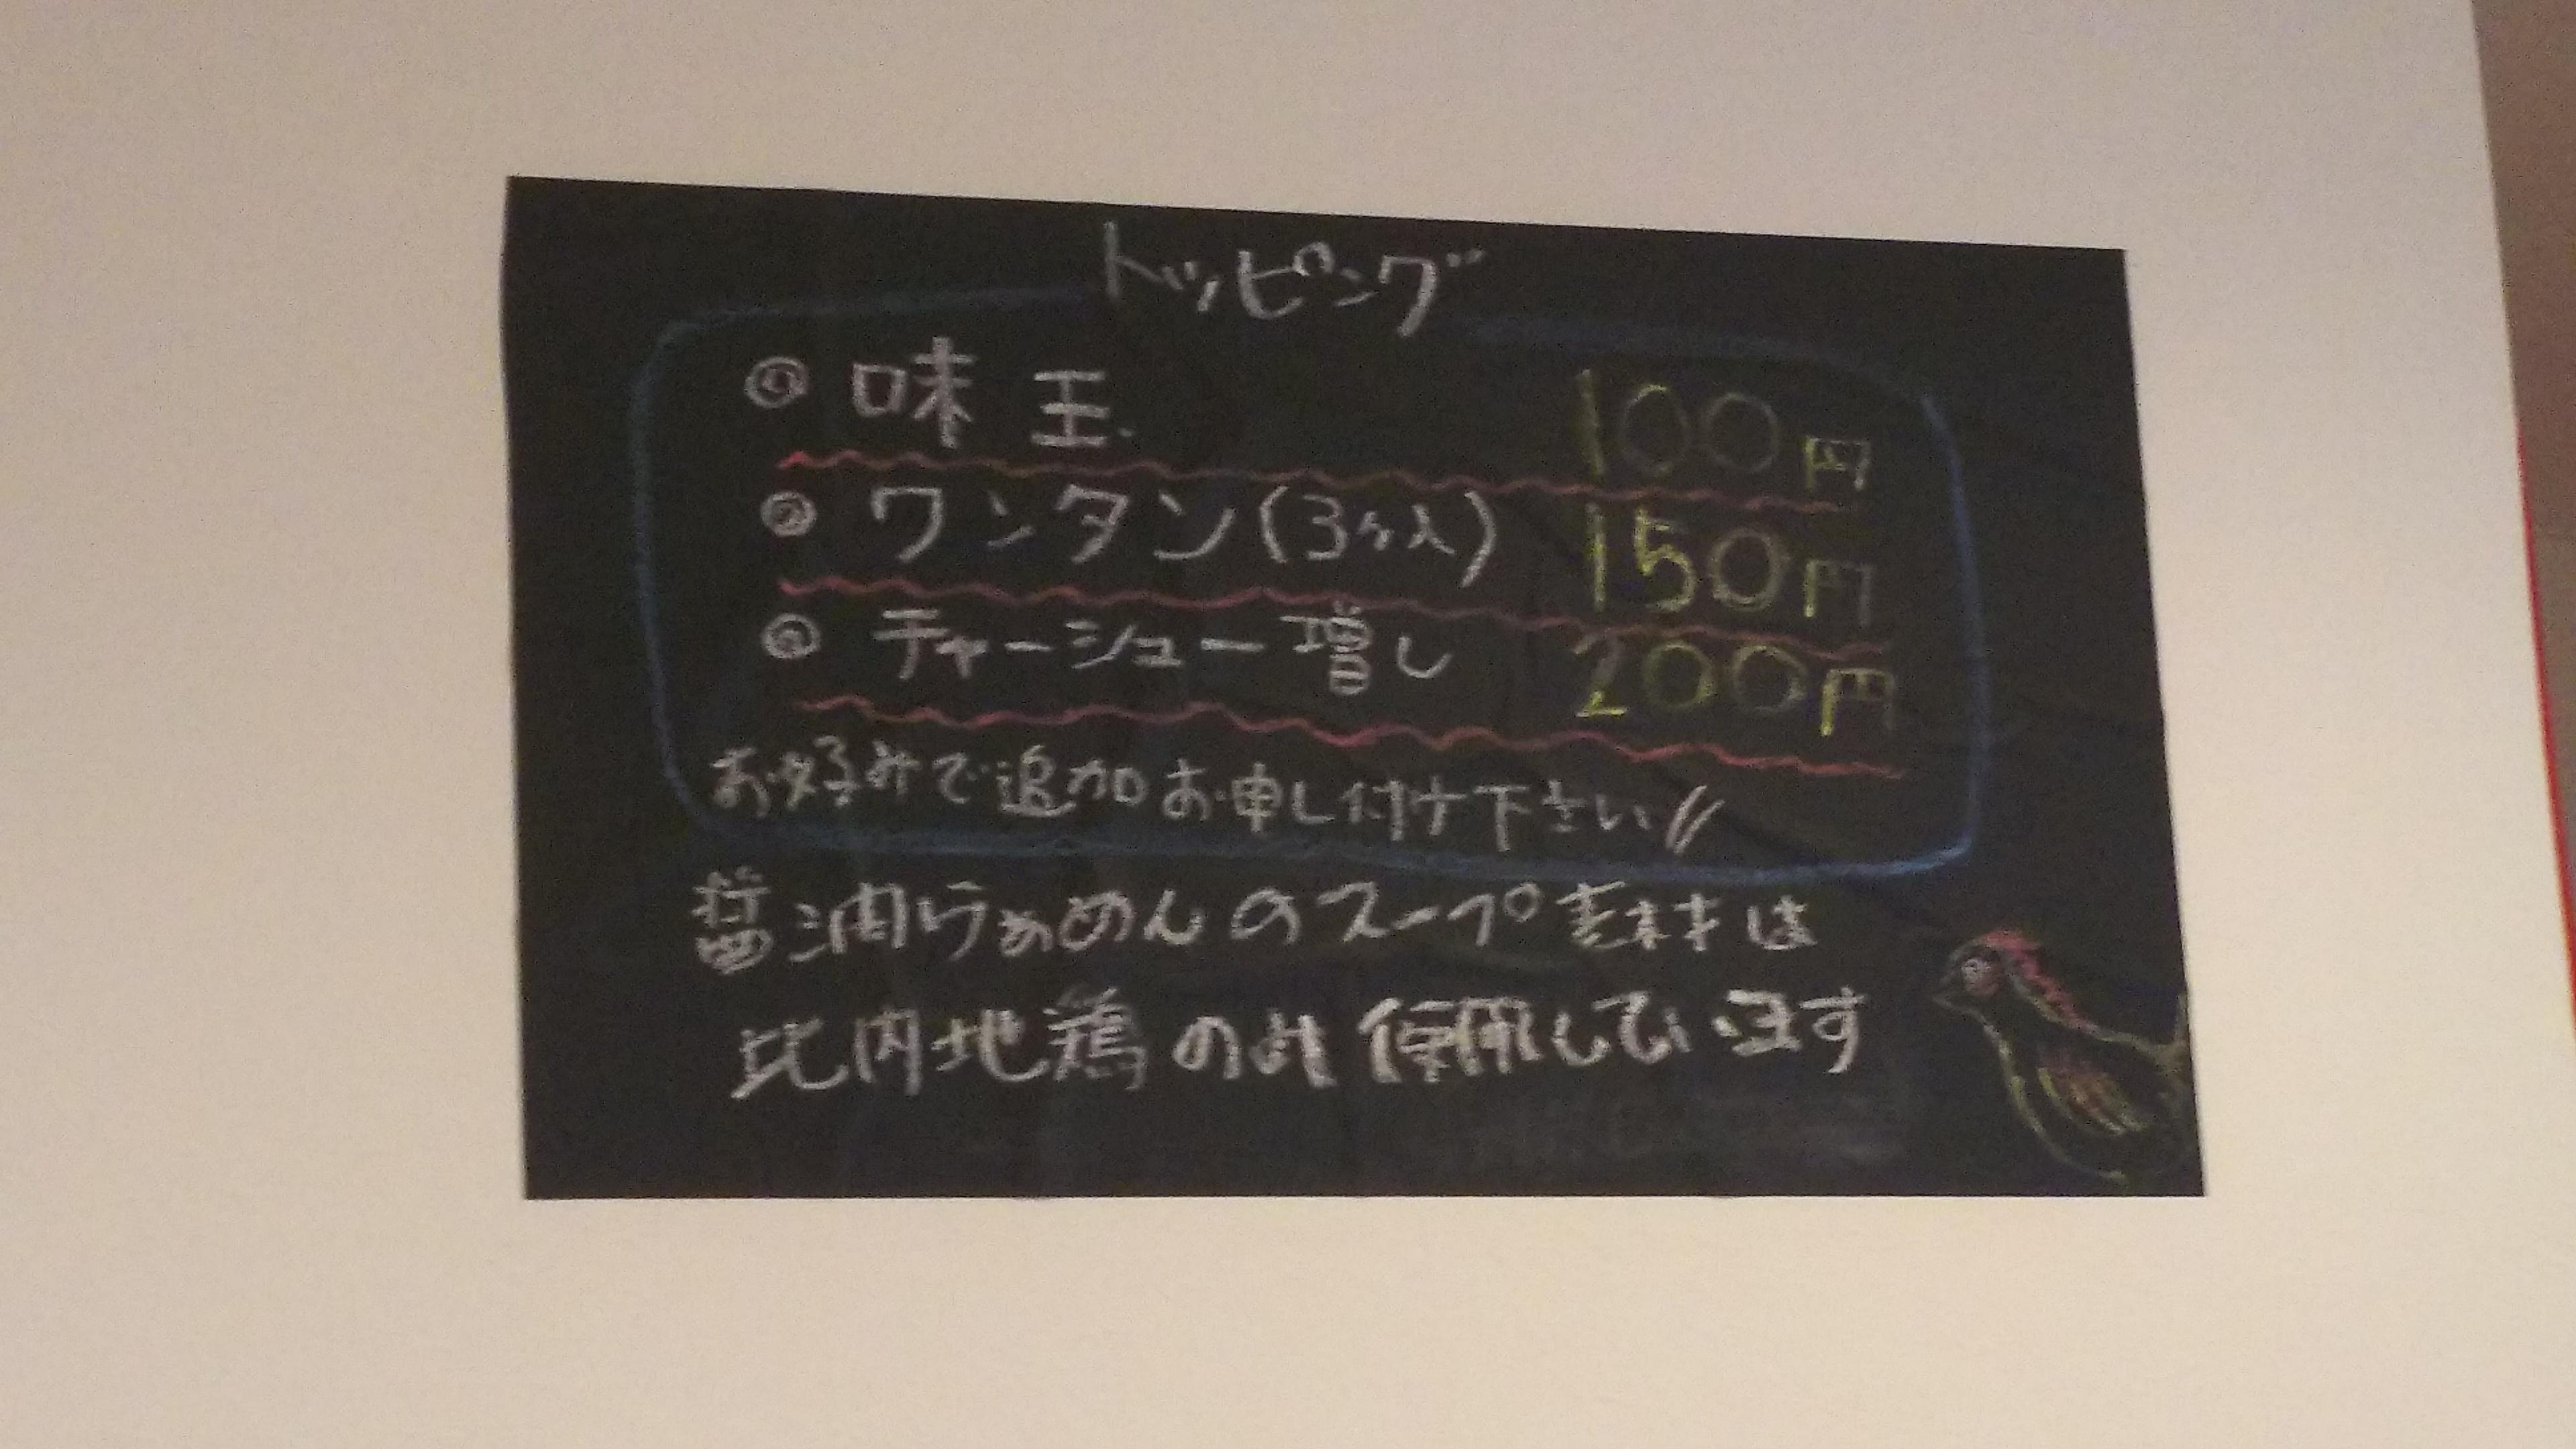 トッピング
◎ 味玉 100円
◎ ワンタン(3ヶ入) 150円
◎ チャーシュー増し 200円
お好みで追加お申し付け下さい//
醤油らぁめんのスープ素材は
比内地鶏のみ使用しています